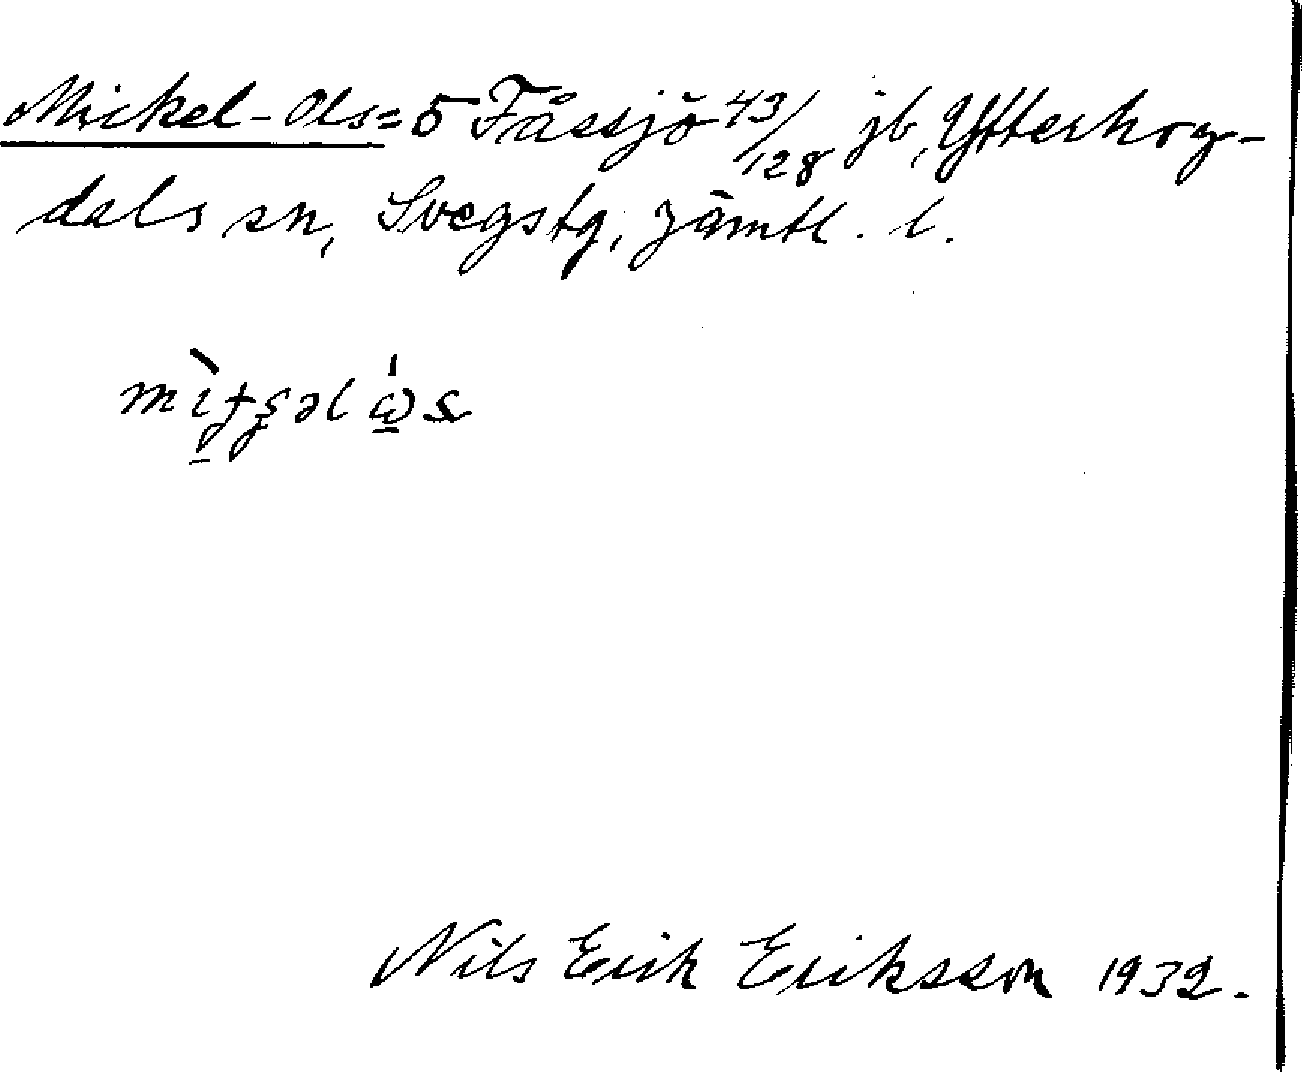 Mickel-Ols = 5 Fåssjö 43/128 jb, Ytterhog-
dals sn, Svegs tg, Jämtl. l.
Nils Erik Eriksson 1932.